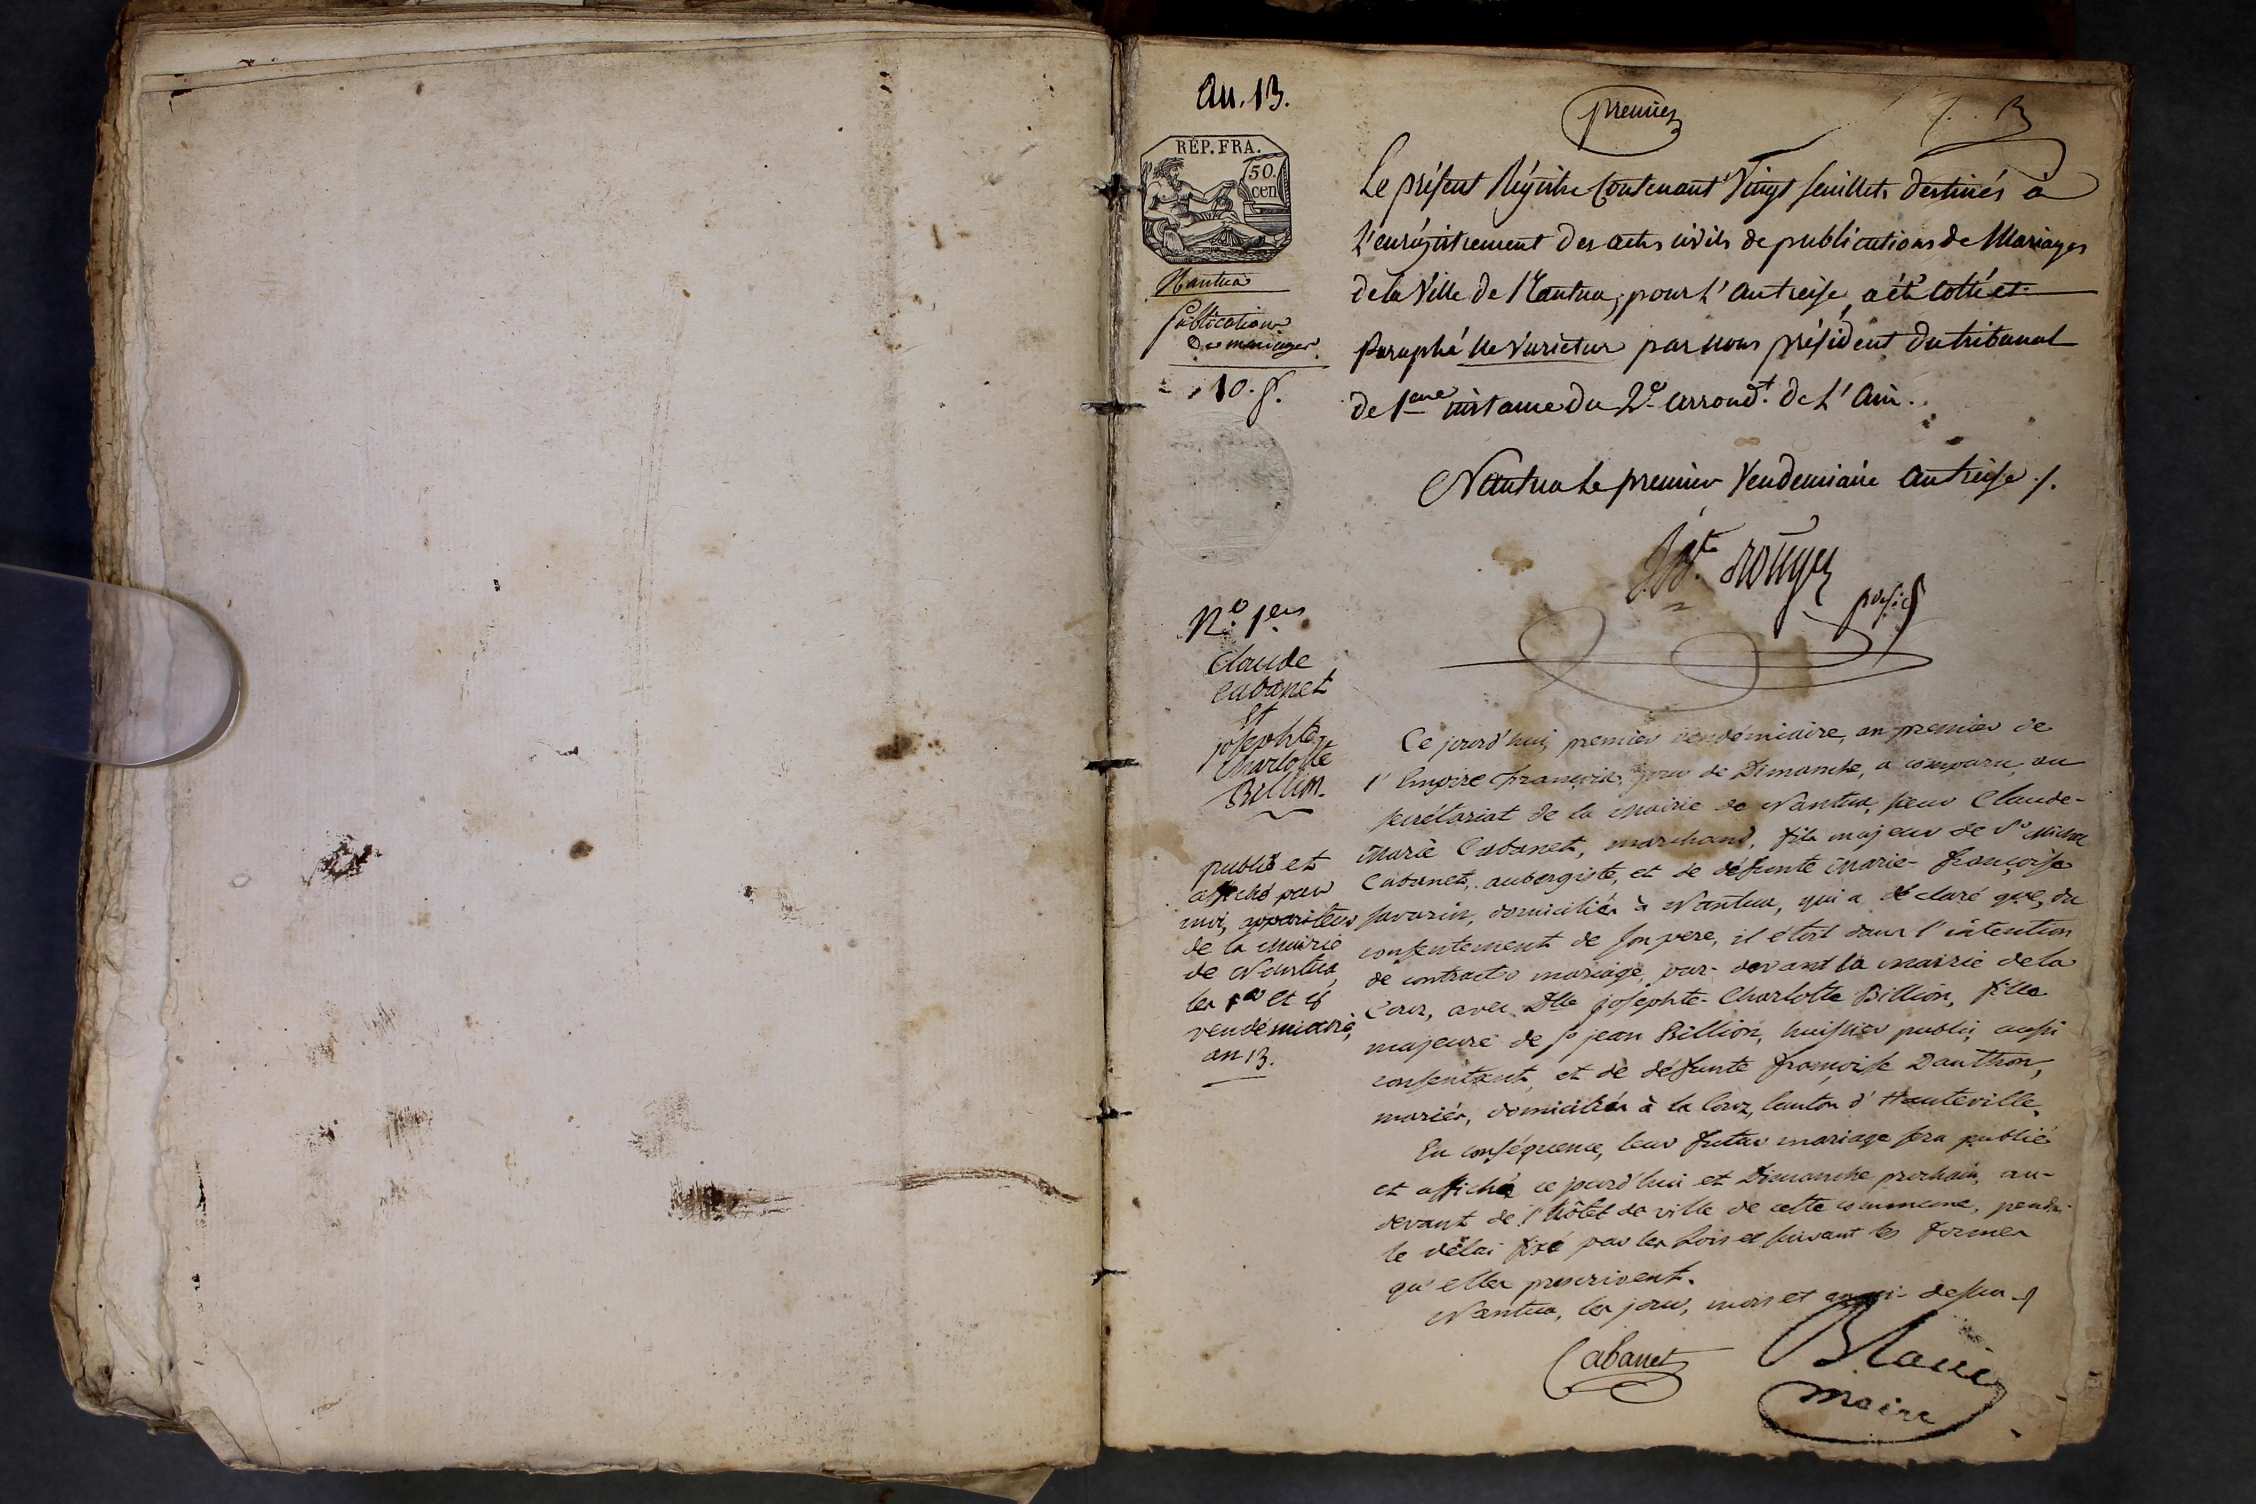 An. 13.
premier
RÉP. FRA.
50.
cen
Le présent Régistre Contenant Vingt feuillets destinés à
L'enrégistrement des actes civils de publications de Mariages
de la Ville de Nantua, pour L'an treise, a été Cotté et
Paraphé Ne Varietur par nous président du tribunal
de 1ere instance du 2e arrondt. de L'Ain.
Nantua Le premier Vendemiaire an treise ./.
Nantua
Publications
de mariages
10. f.
rouyer
N.o 1er
Claude
Cabanet
et
josephte
Charlotte
Billion
publié et
affiché par
moi, appariteur
de la mairie
de Nantua,
les 1er et 8
vendémiaire,
an 13.
Ce jourd'hui, premier vendémiaire, an premier de
l'Empire français, jour de Dimanche, a comparu, au
secrétariat de la mairie de Nantua, sieur Claude-
Marie Cabanet, marchand, fils majeur de Sr Michel
Cabanet, aubergiste, et de défunte Marie-françoise
Savarin, domiciliés à Nantua, qui a déclaré que, du
consentement de son pere, il étoit dans l'intention
de contracter mariage, par-devant la mairie de la
Couz, avec Dlle joséphte-Charlotte Billion, fille
majeure de Sr jean Billion, huissier public, aussi
consentant, et de défunte françoise Dauthon,
mariés, domiciliés à la Couz, Canton d'Hauteville.
En conséquence, leur futur mariage sera publié
et affiché ce jourd'hui et Dimanche prochain, au-
devant de l'hôtel de ville de cette commune, pendt
le délai fixé par les Lois et suivant les formes
qu'elles prescrivent.
Nantua, les jour, mois et an ci-dessus
Cabanet
maire